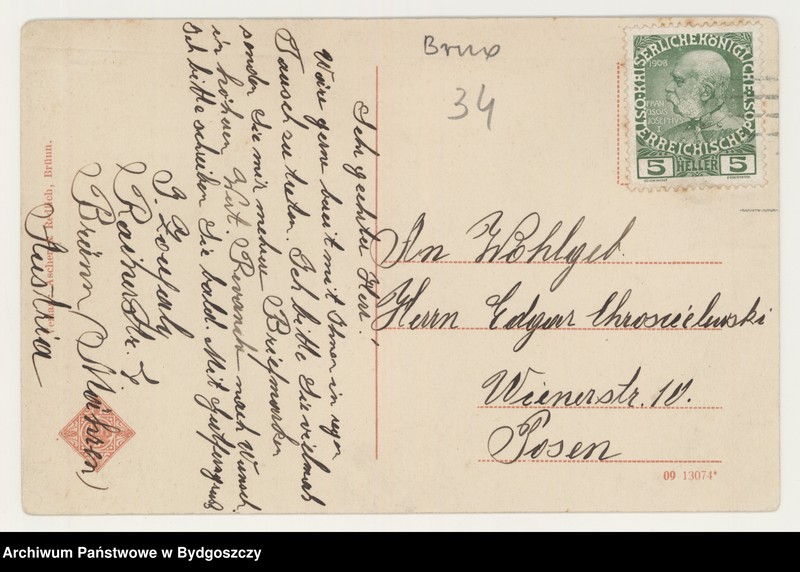 Sehr geehrter Herr!
Wäre gerne bereit mit Ihnen in regen
Tausch zu treten. Ich bitte Sie vielmals
senden Sie mir mehrere Briefmarken
in höhern Wert. Revanch nach Wunsch.
Ich bitte schreiben Sie bald. Mit
J. Zoufaly
Rainerstr. 7
Brünn (Mähren)
Austria
Ascher & Redlich, Brünn.
Brux
34
KAISERLICHE KÖNIGLICHE ÖSTERREICHISCHE POST
1908
FRANCISCUS JOSEPHUS I
5 HELLER 5
An Wohlgeb.
Herrn Edgar Chroscielewski
Wienerstr. 10.
Posen
09 13074*
Archiwum Państwowe w Bydgoszczy